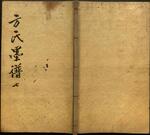 方氏墨譜 七